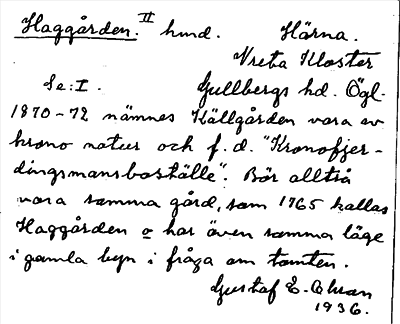 Haggården. II hmd. Härna.
Vreta Kloster
Se: I. Gullbergs hd. Ögl.
1870-72 nämnes Källgården vara av
krono natur och f. d. "Kronofjer-
dingsmansboställe". Bör alltså
vara samma gård, som 1765 kallas
Haggården o har även samma läge
i gamla byn i fråga om tomten.
Gustaf E-Olsson
1936.